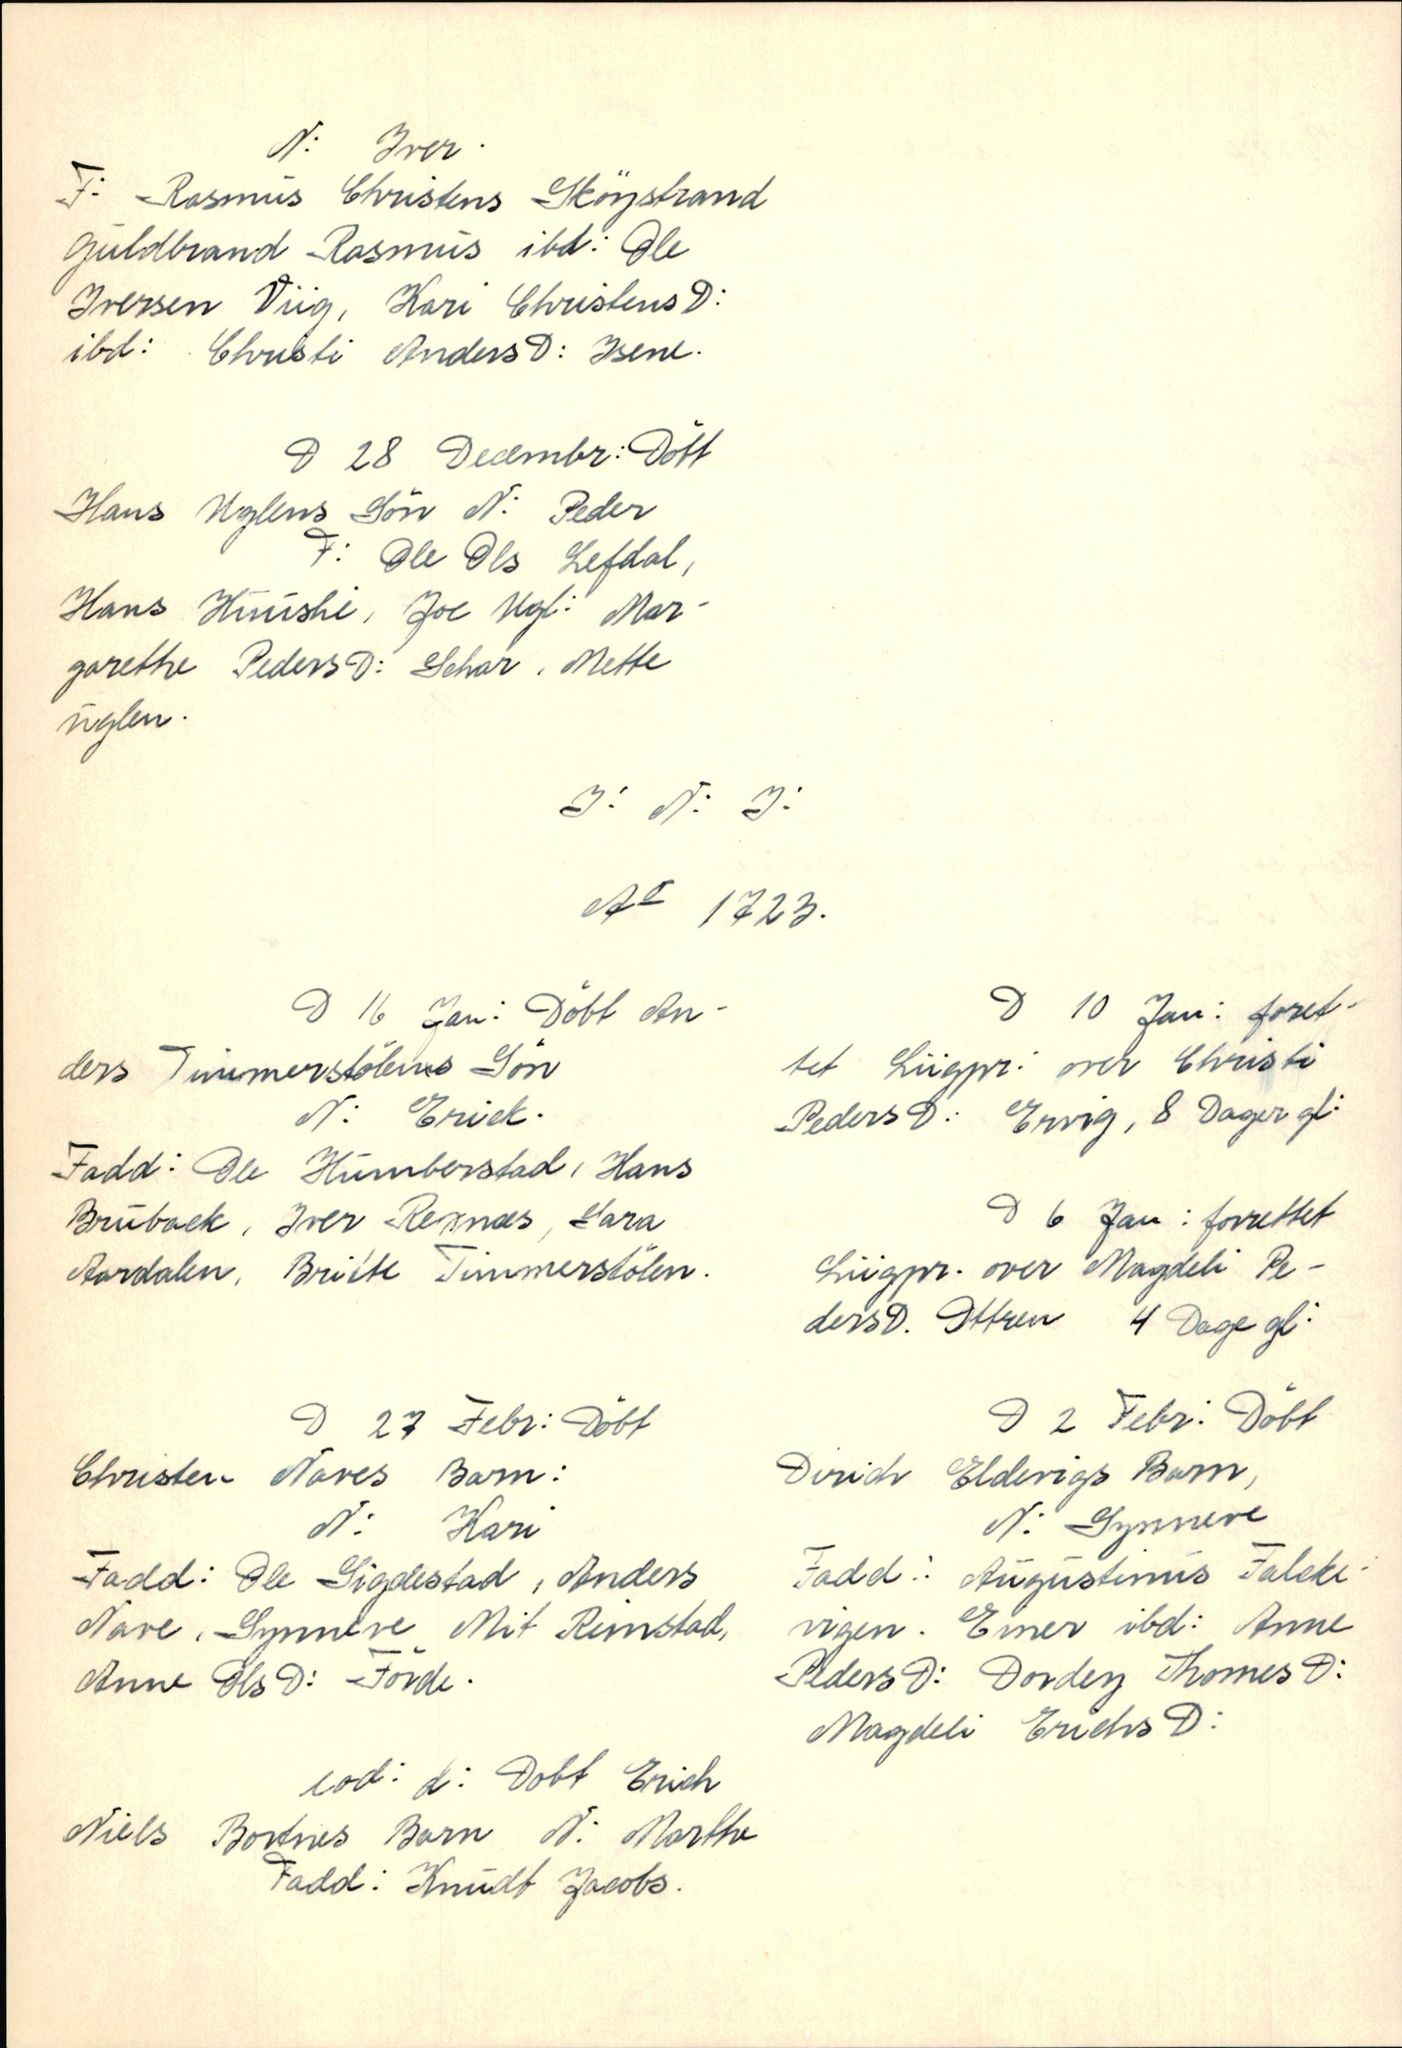 N: Iver.
F: Rasmus Christens Sköystrand
Guldbrand Rasmus ibd: Ole
Iversen Viig, Kari ChristensD:
ibd: Christi AndersD: Isene.
D 28 Decembr: Döbt
Hans Uglens Sön N: Peder
F: Ole Ols Lefdal,
Hans Huushi, Joe Ugl: Mar-
garethe PedersD: Schar. Mette
uglen.
I: N: I:
Ao 1723.
D 16 Jan: Döbt An-
ders Timmerstölens Sön
N: Erick.
Fadd: Ole Humberstad, Hans
Bruback, Iver Rexnæs, Sara
Aardalen, Britte Timmerstölen.
D 27 Febr: Döbt
Christen Naves Barn:
N: Kari
Fadd: Ole Sigdestad, Anders
Nave, Synneve Mit Rimstad,
Anne OlsD: Förde.
eod: d: Dobt Erich
Niels Bortnes Barn N: Marthe
Fadd: Knudt Jacobs.
D 10 Jan: foret-
tet Liigpr: over Christi
PedersD: Ervig, 8 Dager gl:
D 6 Jan: forrettet
Liigpr. over Magdeli Pe-
dersD. Ottren 4 Dage gl:
D 2 Febr: Döbt
Dirich Eldevigs Barn,
N: Synneve
Fadd: Augustinus Falcke-
vigen. Emer ibd: Anne
PedersD: Dordey ThomesD:
Magdeli ErichsD: